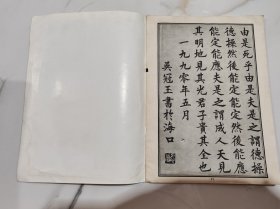 由是死乎由夫是之謂德操
德操然後能定能定然後能應
能定能應夫是之謂成人天見
其明地見其光君子貴其全也
一九九零年五月
吳冠玉書於海口